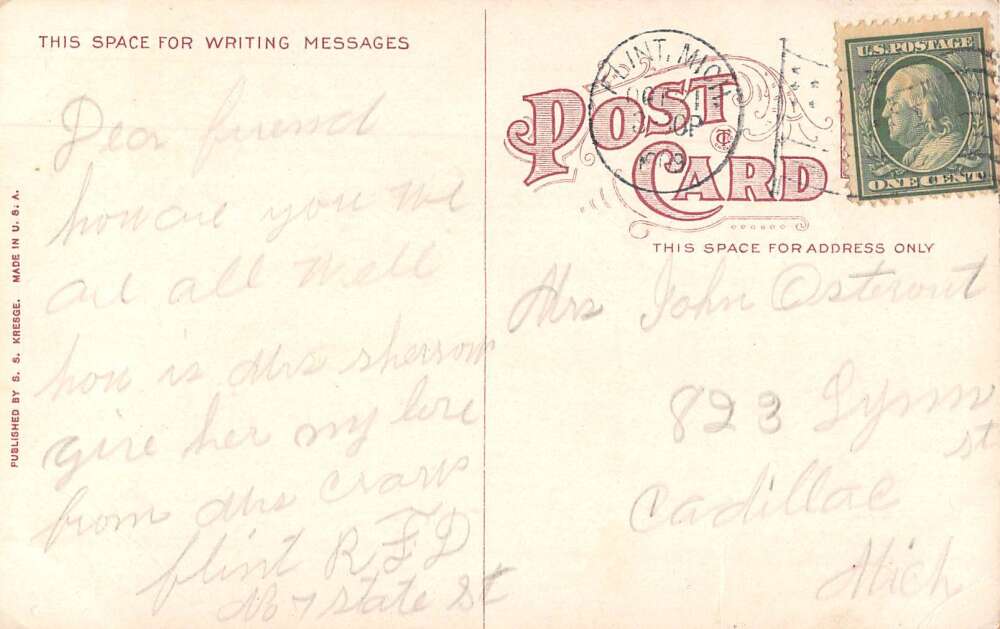 THIS SPACE FOR WRITING MESSAGES
Dear friend
how are you We
are all Well
how is Mrs sherrow
give her my love
from Mrs
flint R F D
No 7 state St
PUBLISHED BY S. S. KRESGE. MADE IN U. S. A.
POST
CARD
THIS SPACE FOR ADDRESS ONLY
FLINT, MICH
U.S. POSTAGE
ONE CENT
Mrs John Osterout
823 Lynn
st
Cadillac
Mich